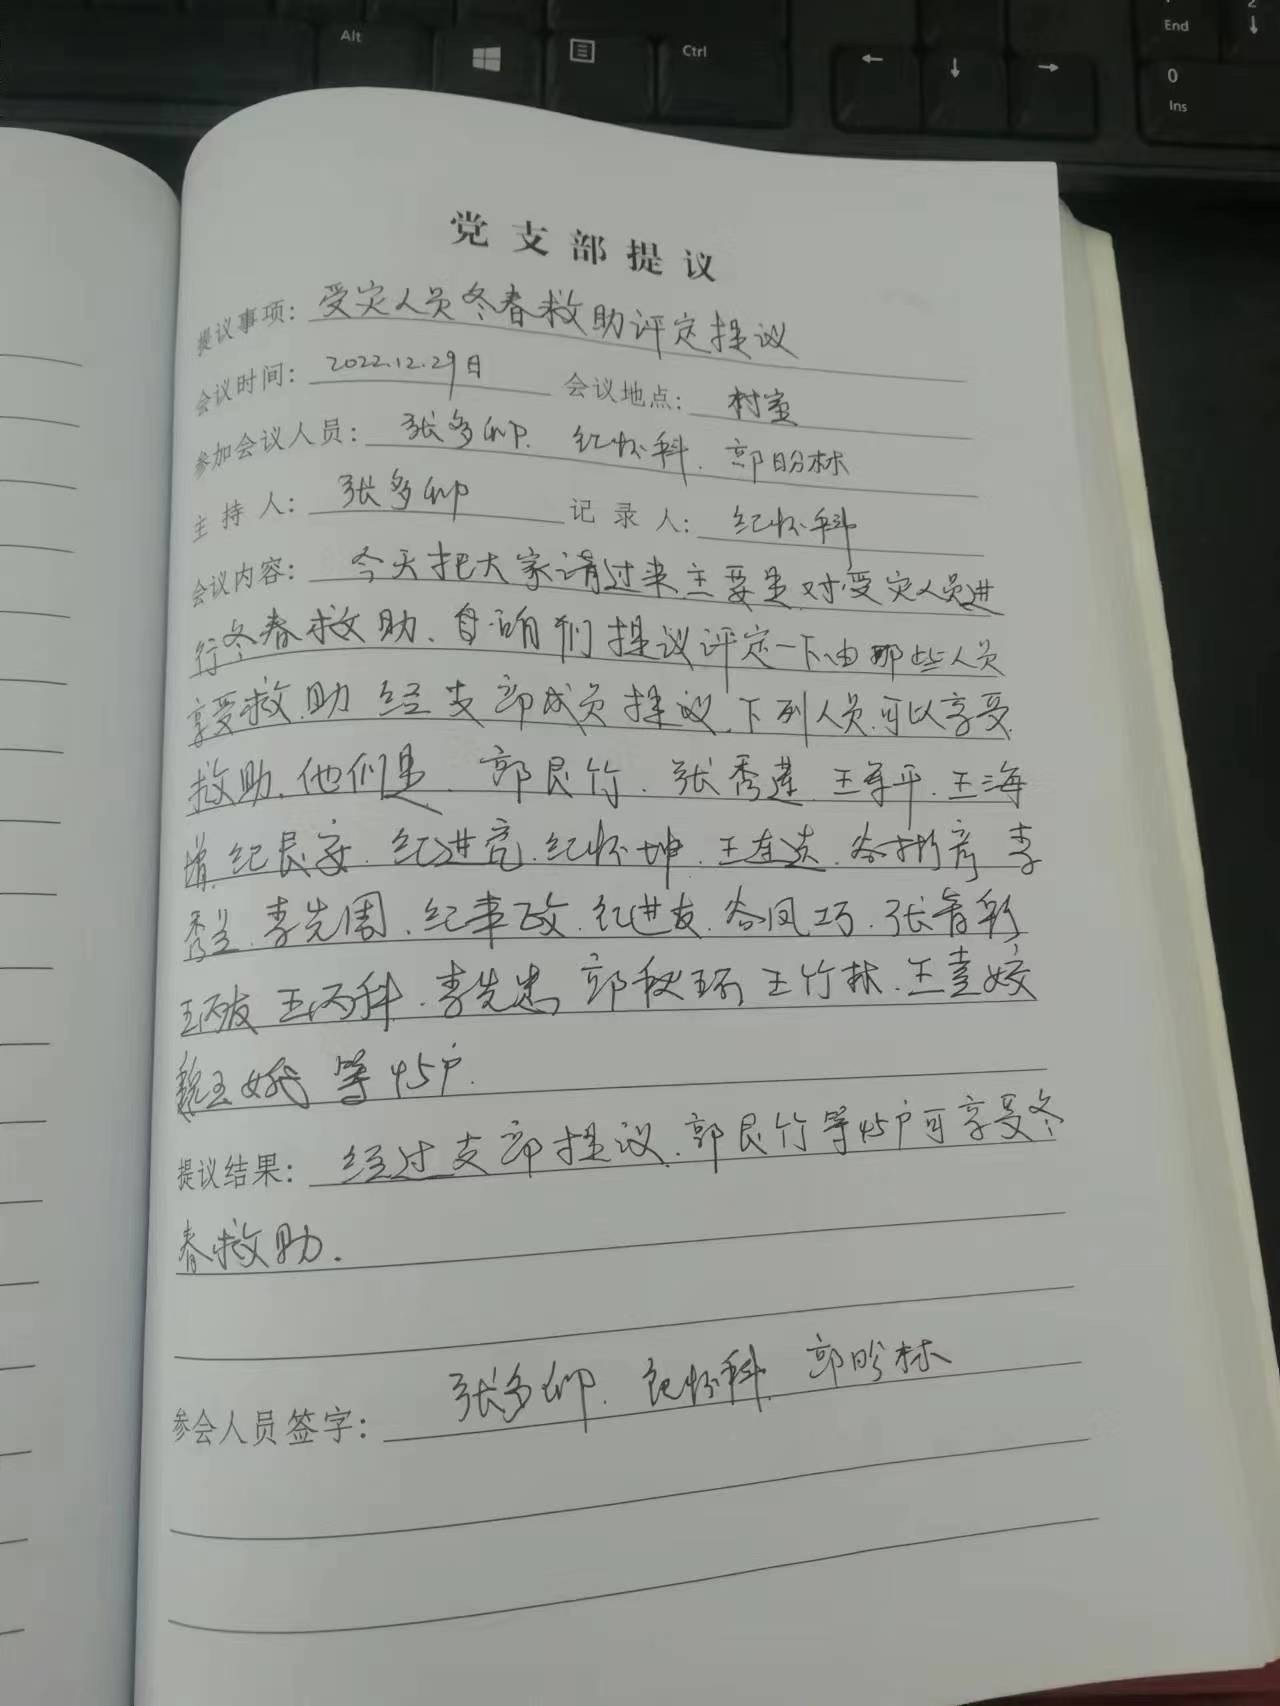 Alt
Ctrl
End
2
0
Ins
党支部提议
提议事项：受灾人员冬春救助评定提议
会议时间：2022.12.29日 会议地点：村室
参加会议人员：张多仰、纪怀科、郭盼林
主持人：张多仰 记录人：纪怀科
会议内容：今天把大家请过来主要是对受灾人员进
行冬春救助、自咱们提议评定一下由那些人员
享受救助 经支部成员提议、下列人员可以享受
救助、他们是、郭良竹、张秀莲、王军平、王海
增、纪良安、纪进亮、纪怀坤、王有 李
秀兰、李先周、纪军政、纪进友、谷凤巧、张春彩
王丙友 王丙科、李先忠 郭秋环 王竹林、王喜姣
魏玉娥 等45户.
提议结果：经过支部提议、郭良竹等45户可享受冬
春救助.
参会人员签字：张多仰、纪怀科 郭盼林